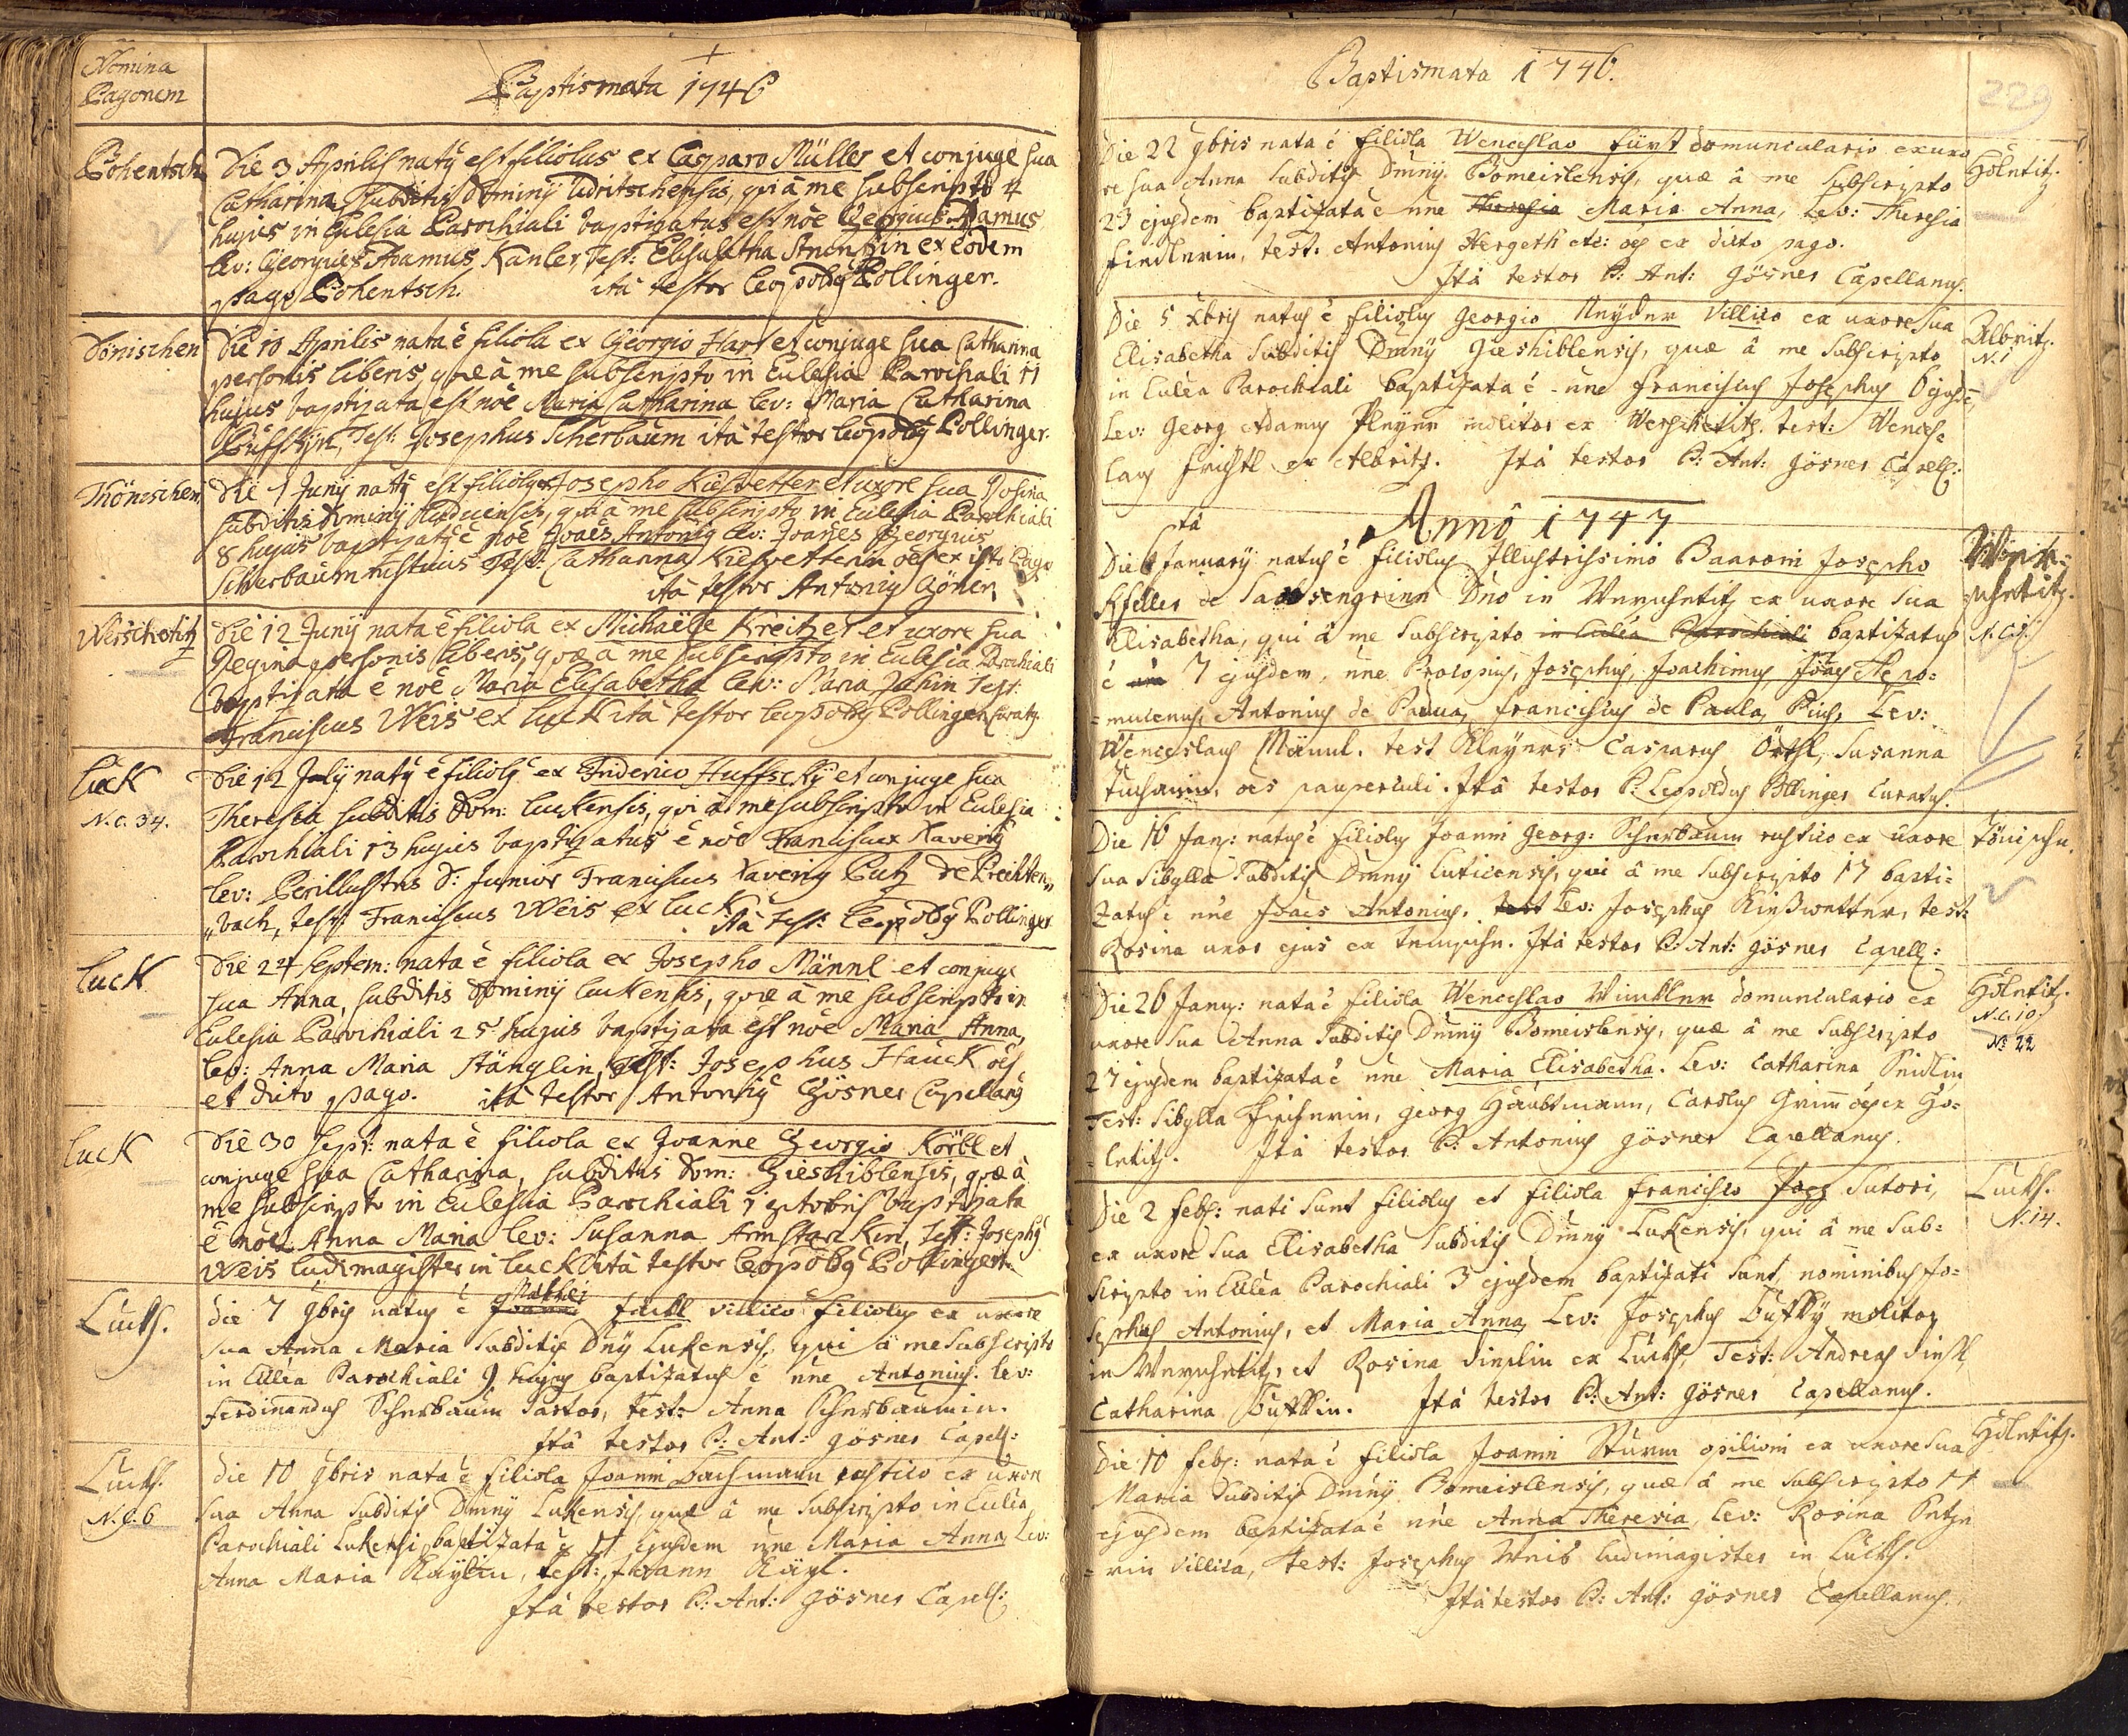 Nomina
Pagorum
Baptismata 1746
Pohentsch
Die 3 Aprilis natq est filiolus ex Casparo Müller et conjuge sua
Catharina, subditis Dominÿ Udritschensis, qui à me subscripto 4
hujus in Eclesia Parochiali baptizatus est nõe Georgius Adamus
lev: Georgius Adamus Kanler, Test: Elisabetha ex eodem
pago Pohentsch. ità testor Leopoldq Pollinger.
Dönischen
Die 10 Aprilis nata ẽ filiola ex Georgio Hart et conjuge sua Catharina
personis liberis, quæ à me subscripto in Eclesia Parochiali 11
hujus baptizata est nõe Maria Catharina lev: Maria Catharina
Test: Josephus Scherbaum ità testor Leopoldq Pollinger.
Thönischen
Die 7 Junÿ natq est filiolq ex Josepho Kiesvetter et uxore sua Rosina
subditis Dominÿ, qui à me subscripto in Eclesia Parochiali
8 hujus baptizatq ẽ nõe Joães Antoniq lev: Joañes Georgius
Scherbaum rusticus Test: Catharina Kiesvetterin oẽs ex isto Pago
ità testor Antoniq Gösner
Werschetitz
Die 12 Junÿ nata ẽ filiola ex Michaële Kreitzer et uxore sua
Regina personis liberis, quæ à me subscripto in Eclesia Parochiali
baptizata ẽ nõe Maria Elisabetha lev: Maria Test:
Franciscus Weis ex Luck ità testor Leopoldq Pollinger Curatq.
Luck
N.C. 34.
Die 12 Julÿ natq ẽ filiolq ex Friderico Huffsckÿ et conjuge sua
Theresia subditis Dom: Luckensis, qui à me subscripto in Eclesia
Parochiali 13 hujus baptizatus ẽ nõe Franciscus Xaveriq
lev: Perillustris D: Junior Franciscus Xaveriq Putz de
bach, test: Franciscus Weis ex Luck. ità test: Leopoldq Pollinger
Luck
Die 24 Septem: nata ẽ filiola ex Josepho Männl et conjuge
sua Anna, subditis Dominÿ Luckensis, quæ à me subscripto in
Eclesia Parochiali 25 hujus baptizata est nõe Maria Anna,
lev: Anna Maria Stänglin, Test: Josephus Hauck oẽs
et dicto pago. ità testor Antoniq Gösner Capellanq
Luck
Die 30 Sept: nata ẽ filiola ex Joanne Georgio Körbl et
conjuge sua Catharina, subditis Dom: Gieshiblensis, quæ à
me subscripto in Eclesia Parochiali 1 octobris baptizata
ẽ nõe Anna Maria lev: Susanna Test: Josephq
Weis ludimagister in Luck ità testor Leopoldq Pollinger
Luckh.
Mathei
die 7 9bris natus ẽ Joanni Jackl villico filiolus ex uxore
sua Anna Maria subditis Dnÿ Lukensis, qui à me subscripto
in Ecclẽa Parochiali 9 hujus baptizatus ẽ nñe Antonius. lev:
Ferdinandus Scherbaum sartor, test: Anna Scherbaumin.
Ità testor P: Ant: Gösner Capell:
Luckh.
N.C. 6
die 10 9bris nata ẽ filiola Joanni Bachmann rustico ex uxore
sua Anna subditis Dmnÿ Lukensis, quæ à me subscripto in Ecclẽa
Parochiali Lukensi, baptizata ẽ 11 ejusdem nñe Maria Anna lev:
Anna Maria Käÿlin, test: Joann Käÿl.
Ità testor P: Ant: Gösner Capell:
Baptismata 1746.
229
Die 22 9bris nata ẽ filiola Wenceslao Fürst domunculario ex uxo
re sua Anna subditis Dmnÿ Pomeislensis, quæ à me subscripto
Hölnitz.
23 ejusdem baptizata ẽ nñe Theresia Maria Anna, Lev: Theresia
Findlerin, test: Antonius Hergeth etc: oẽs ex dicto pago.
Ità testor P: Ant: Gösner Capellanus.
Die 5 Xbris natus ẽ filiolus Georgio Villico ex uxore sua
Albritz.
N. 1
Elisabetha subditis Dmnÿ Gieshiblensis, quæ à me subscripto
in Ecclẽa Parochiali baptizata ẽ nñe Franciscus Josephus 6 ejusdẽ
Lev: Georg Adamus molitor ex Werschetitz. test: Wences
laus ex Albritz. Ità testor P: Ant: Gösner Capell:
Anno 1747
Die 6ta Januarÿ natus ẽ filiolus Illustrissimo Baaroni Josepho
Kfeller de Sachsengrinn Dno in Werschetitz ex uxore sua
schetitz.
Elisabetha, qui à me subscripto in Ecclẽa Parochiali baptizatus
ẽ 7 ejusdem, nñe Procopius, Josephus, Joachimus, Joães Nepo=
=mucenus, Antonius de Padua, Franciscus de Paula, Pius, Lev:
Wenceslaus Mannl. test Casparus Örthl, Susanna
oẽs pauperculi. Ità testor P: Leopoldus Pollinger Curatus.
Die 16 Jan: natus ẽ filiolus Joanni Georg: Scherbaum rustico ex uxore
Tönischn.
sua Sibylla subditis Dmnÿ Luticensis, qui à me subscripto 17 bapti=
zatus ẽ nñe Joães Antonius. test Lev: Josephus Kießwetter, test:
Rosina uxor ejus ex Ità testor P: Ant: Gösner Capell:
Die 26 Janu: nata ẽ filiola Wenceslao Winkler domunculario ex
Hölnitz.
N.C. 10.
N: 22
uxore sua Anna subditis Dmnÿ Pomeislensis, quæ à me subscripto
27 ejusdem baptizata ẽ nñe Maria Elisabetha. Lev: Catharina
Test: Sibylla, Georg Häubtmann, Carolus Grimm oẽs ex Hö=
=lnitz. Ità testor P: Antonius Gösner Capellanus.
Die 2 Feb: nati sunt filiolus et filiola Francisco sutori,
Luckh.
N. 14.
ex uxore sua Elisabetha subditis Dmnÿ Lukensis, qui à me sub=
scripto in Ecclẽa Parochiali 3 ejusdem baptizati sunt, nominibus Jo=
sephus Antonius, et Maria Anna, Lev: Josephus molitor
in Werschetitz, et Rosina ex Luckh, Test: Andreas
Catharina. Ità testor P: Ant: Gösner Capellanus.
Die 10 Feb: nata ẽ filiola Joanni Sturm opilioni ex uxore sua
Hölnitz.
Maria subditis Dmnÿ Pomeislensis, quæ à me subscripto 11
ejusdem baptizata ẽ nñe Anna Theresia, Lev: Rosina
=rin Villica, test: Josephus Weis ludimagister in Luckh.
Ità testor P: Ant: Gösner Capellanus.